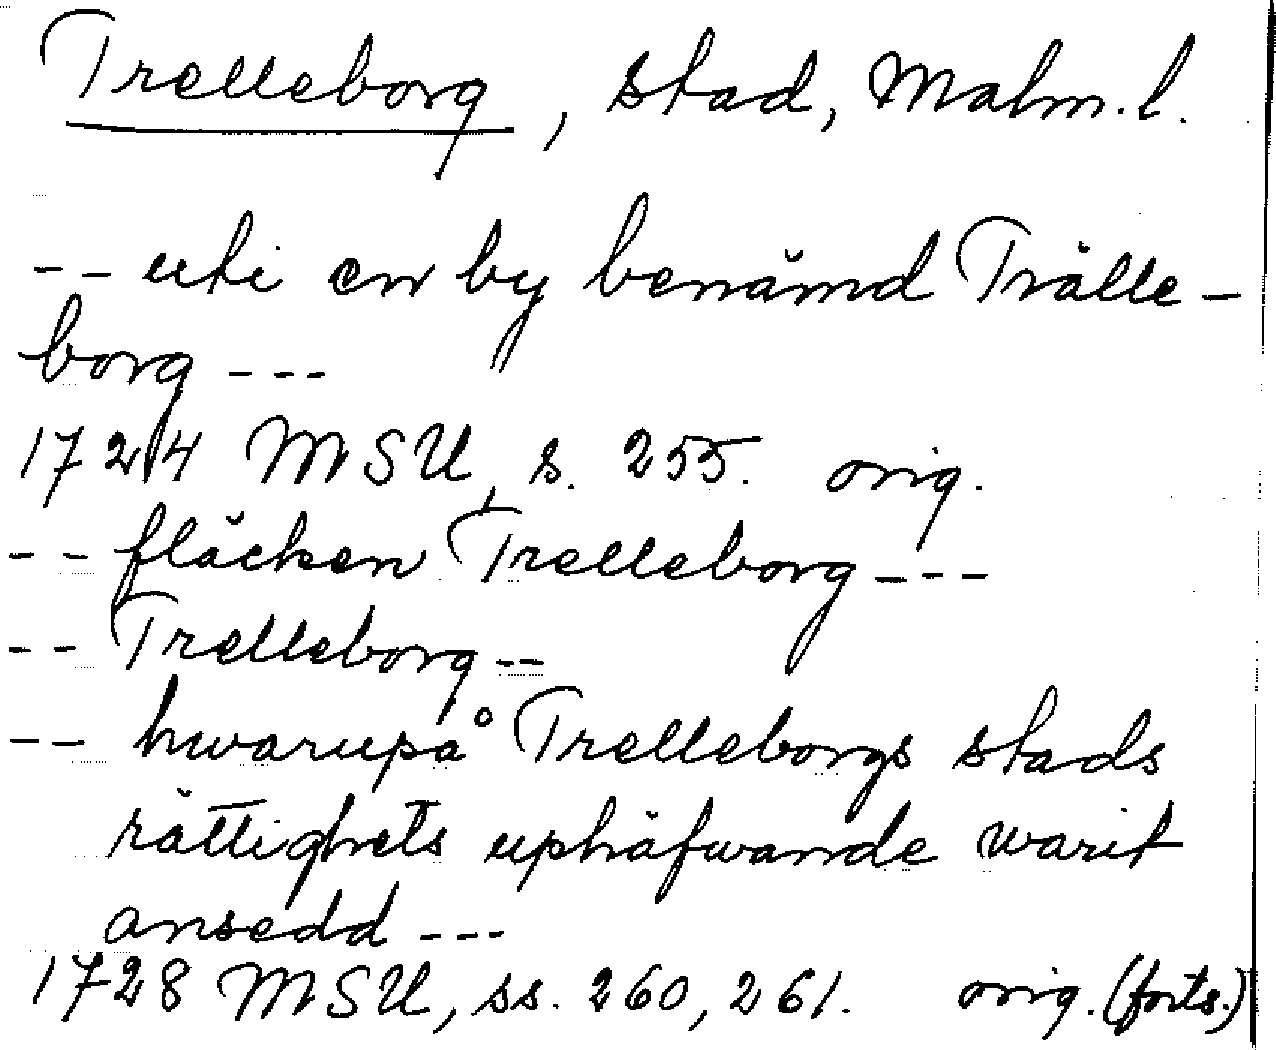 Trelleborg, stad, Malm. l.
-- uti en by benämd Trälle-
borg ---
1724 MSU, s. 255. orig.
-- fläcken Trelleborg ---
-- Trelleborg --
-- hwarupå Trelleborgs stads
rättighets uphäfwande warit
ansedd ---
1728 MSU, ss. 260, 261. orig. (forts.)